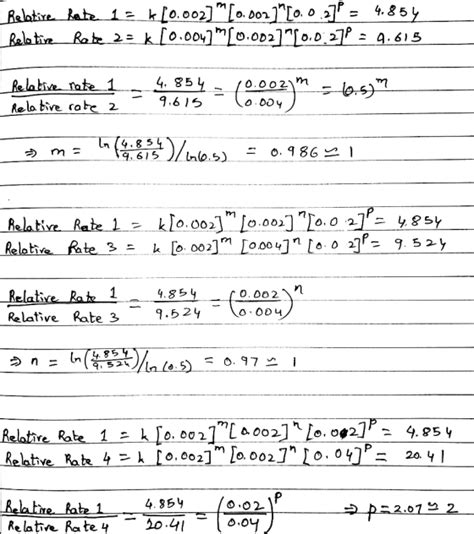 Relative Rate 1 = k [0.002]^m [0.002]^n [0.0 2]^p = 4.854
Relative Rate 2 = k [0.004]^m [0.002]^n [0.0 2]^p = 9.615
Relative rate 1 / Relative rate 2 = 4.854 / 9.615 = (0.002 / 0.004)^m = (0.5)^m
⇒ m = ln(4.854/9.615) / ln(0.5) = 0.986 ≃ 1
Relative Rate 1 = k [0.002]^m [0.002]^n [0.0 2]^p = 4.854
Relative Rate 3 = k [0.002]^m [0.004]^n [0.0 2]^p = 9.524
Relative Rate 1 / Relative Rate 3 = 4.854 / 9.524 = (0.002 / 0.004)^n
⇒ n = ln(4.854/9.524) / ln(0.5) = 0.97 ≃ 1
Relative Rate 1 = k [0.002]^m [0.002]^n [0.02]^p = 4.854
Relative Rate 4 = k [0.002]^m [0.002]^n [0.04]^p = 20.41
Relative Rate 1 / Relative Rate 4 = 4.854 / 20.41 = (0.02 / 0.04)^p ⇒ p = 2.07 ≃ 2